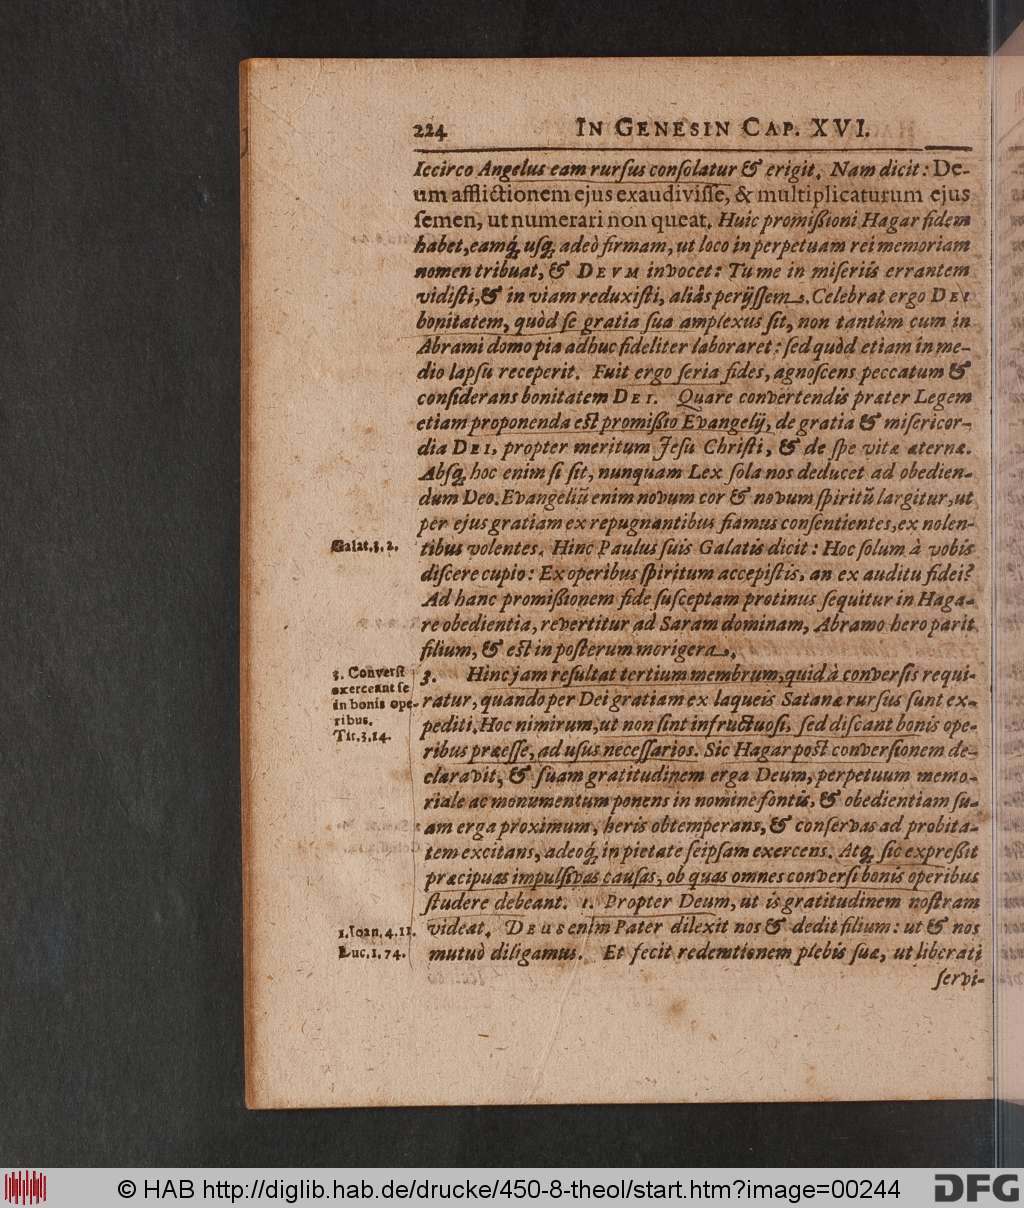 224 IN GENESIN CAP. XVI.
Iccirco Angelus eam rursus consolatur & erigit. Nam dicit: De-
um afflictionem ejus exaudivisse, & multiplicaturum ejus
semen, ut numerari non queat. Huic promißioni Hagar fidem
habet, eamq́, usq́, adeò firmam, ut loco in perpetuam rei memoriam
nomen tribuat, & DEVM invocet: Tu me in miseriis errantem
vidisti, & in viam reduxisti, aliàs perijssem. Celebrat ergo DEI
bonitatem, quòd se gratia sua amplexus sit, non tantùm cum in
Abrami domo pia adhuc fideliter laboraret: sed quòd etiam in me-
dio lapsu receperit. Fuit ergo seria fides, agnoscens peccatum &
considerans bonitatem DEI. Quare convertendis præter Legem
etiam proponenda est promißio Evangelij, de gratia & misericor-
dia DEI, propter meritum Jesu Christi, & de spe vitæ æternæ.
Absq́, hoc enim si sit, nunquam Lex sola nos deducet ad obedien-
dum Deo. Evangeliū enim novum cor & novum spiritū largitur, ut
per ejus gratiam ex repugnantibus fiamus consentientes, ex nolen-
Galat. 3. 2.
tibus volentes. Hinc Paulus suis Galatis dicit: Hoc solum à vobis
discere cupio: Ex operibus spiritum accepistis, an ex auditu fidei?
Ad hanc promißionem fide susceptam protinus sequitur in Haga-
re obedientia, revertitur ad Saram dominam, Abramo hero parit
filium, & est in posterum morigera.
3. Conversi
exerceant se
in bonis ope-
ribus.
Tit. 3. 14.
3. Hinc jam resultat tertium membrum, quid à conversis requi-
ratur, quando per Dei gratiam ex laqueis Satanæ rursus sunt ex-
pediti, Hoc nimirum, ut non sint infructuosi, sed discant bonis ope-
ribus præesse, ad usus necessarios. Sic Hagar post conversionem de-
claravit, & suam gratitudinem erga Deum, perpetuum memo-
riale ac monumentum ponens in nomine fontis, & obedientiam su-
am erga proximum, heris obtemperans, & conservas ad probita-
tem excitans, adeoq́, in pietate seipsam exercens. Atq́, sic expreßit
præcipuas impulsivas causas, ob quas omnes conversi bonis operibus
studere debeant. 1. Propter Deum, ut is gratitudinem nostram
1. Joan. 4. 11.
videat. DEUS enim Pater dilexit nos & dedit filium: ut & nos
Luc. 1. 74.
mutuò diligamus. Et fecit redemtionem plebis suæ, ut liberati
servi-
© HAB http://diglib.hab.de/drucke/450-8-theol/start.htm?image=00244
DFG